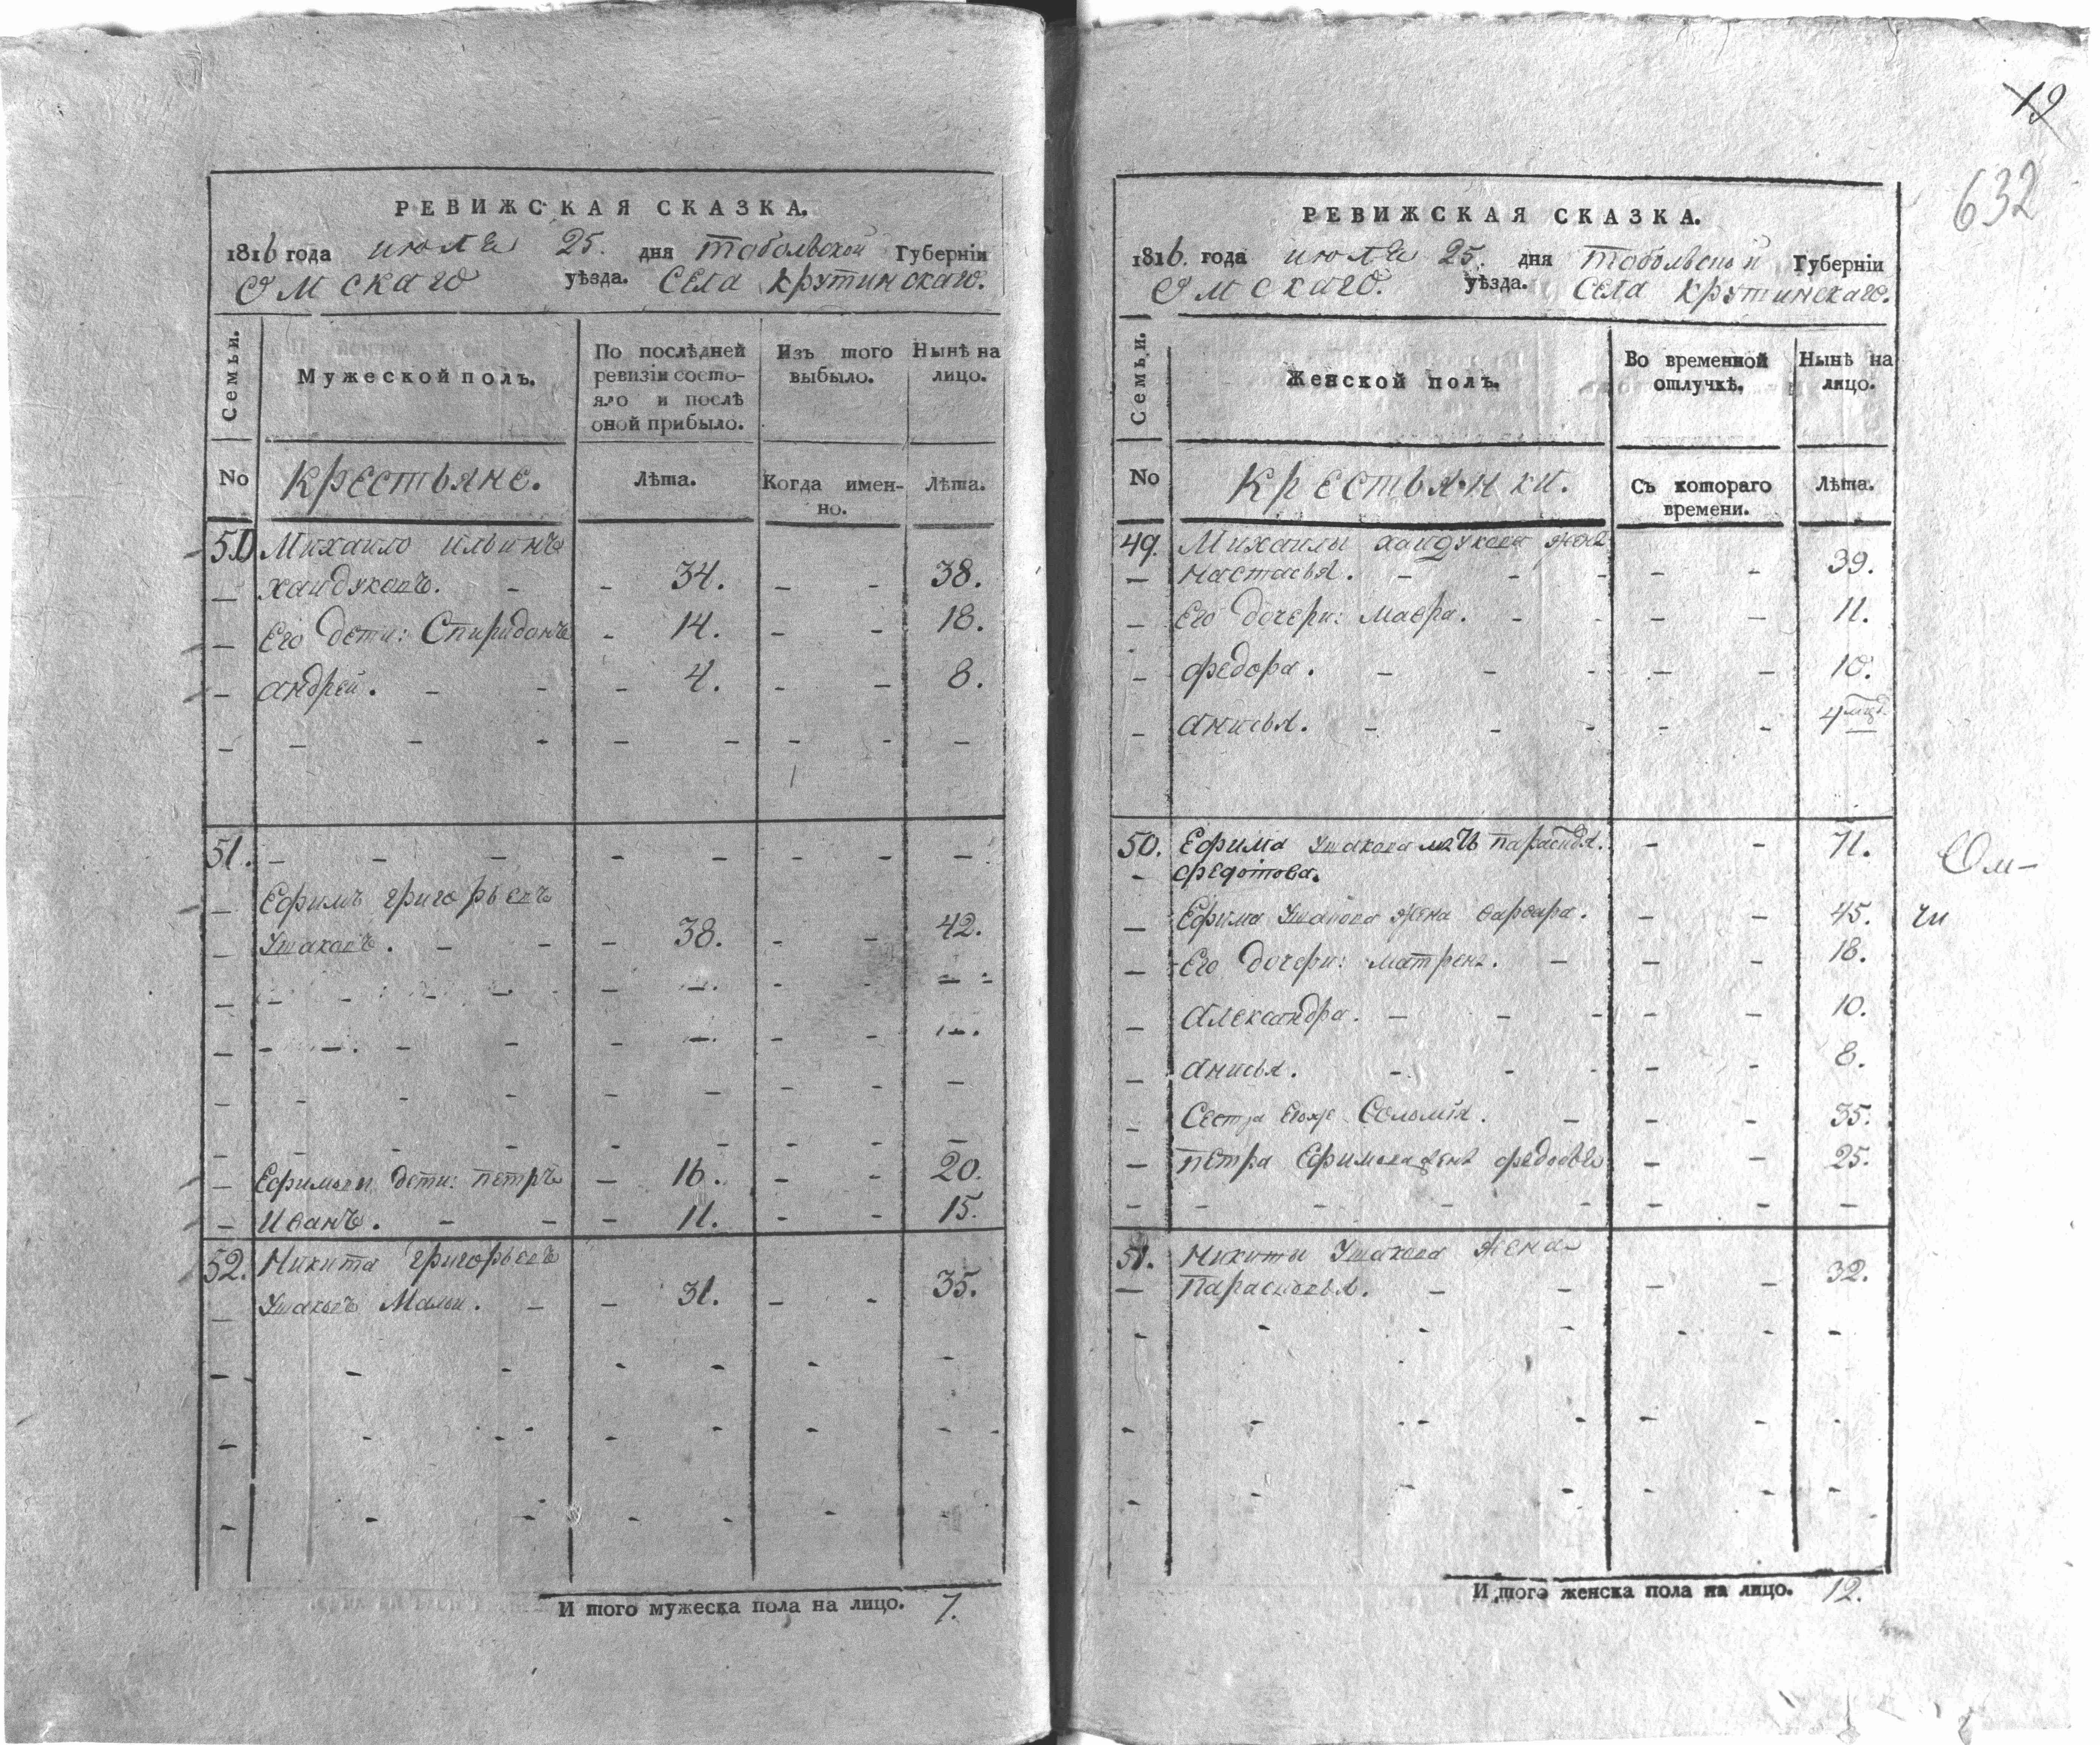 РЕВИЖСКАЯ СКАЗКА.
1816 года июля 25. дня тобольской Губерніи
Омскаго уѣзда. Села крутинскаго.
Семьи.
Мужеской полъ.
По послѣдней
ревизіи состо-
яло и послѣ
оной прибыло.
Изъ того
выбыло.
Нынѣ на
лицо.
No
крестьяне.
Лѣта.
Когда имен-
но.
Лѣта.
50 Михаило ильинъ
хаидуковъ. 34. 38.
Его дети: Спиридонъ 14. 18.
андрей. 4. 8.
51.
Ефимъ григорьевъ
Ушаковъ. 38. 42.
Ефимовы дети: петръ 16. 20.
Иванъ. 11. 15.
52. Никита григорьевъ
Ушаковъ Малои. 31. 35.
И того мужеска пола на лицо. 7.
19
632
РЕВИЖСКАЯ СКАЗКА.
1816. года июля 25. дня тобольской Губерніи
Омскаго. уѣзда. Села крутинскаго.
Семьи.
Женской полъ.
Во временной
отлучкѣ.
Нынѣ на
лицо.
No
крестьянки.
Съ котораго
времени.
Лѣта.
49. Михаилы хаидукова жена
настасья. 39.
Его дочери: мавра. 11.
федора. 10.
анисья. 4
50. Ефима Ушакова мать парасковья 71.
федотова.
Ефима Ушакова жена варвара. 45.
Его дочери: матрена. 18.
Александра. 10.
анисья. 8.
Сестра Соломия. 35.
петра Ефимова жена федосья 25.
51. Никиты Ушакова жена
Парасковья. 32.
Ом-
чи
И того женска пола на лицо. 12.